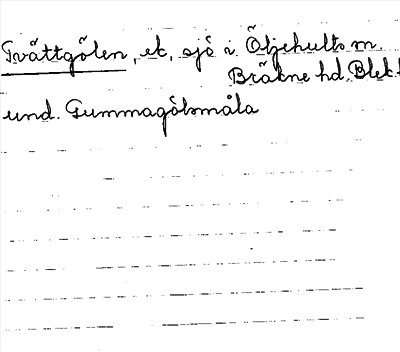 Tvättgölen, ek, sjö i Öljehults sn.
Bräkne hd. Blek.
und. Gummagölsmåla